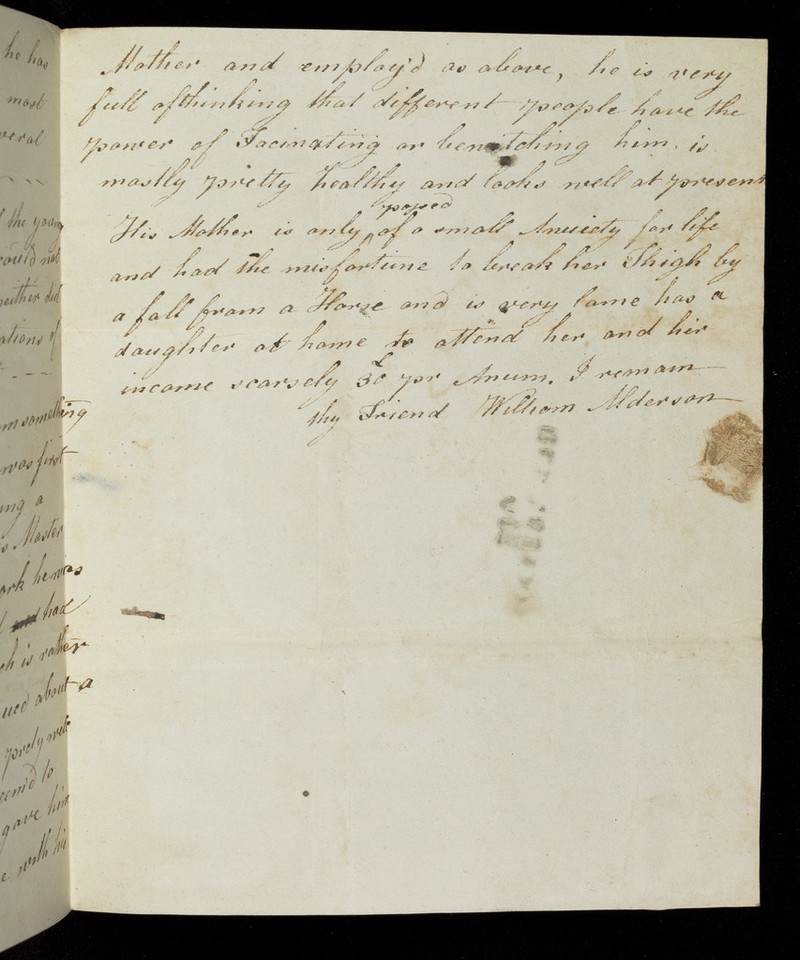 he has
most
veral
the young
could not
neither did
ations of
m something
was first
ing a
s Master
ork he was
had
ch is rather
ued about a
prely well
eem'd to
gave him
e with his
Mother and employ'd as above, he is very
full ofthinking that different people have the
power of Facinating or bewitching him. is
mostly pretty healthy and looks well at present
possed
His Mother is only of a small Anuiety for life
and had the misfortune to break her Thigh by
a fall from a Horse and is very lame has a
daughter at home to attend her and her
income scarsely 30£ pr Anum. I remain
thy Friend William Alderson